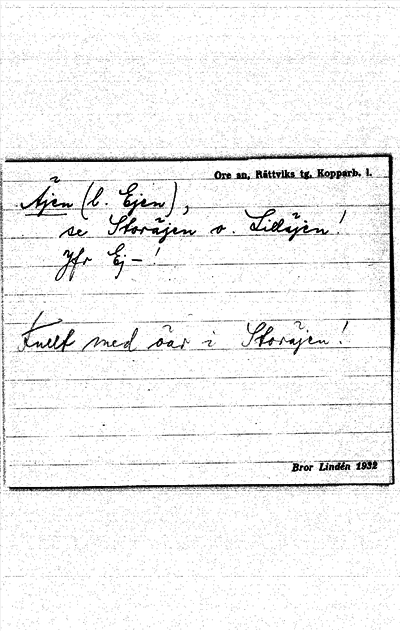 Ore sn, Rättviks tg, Kopparb. l.
Äjen (l. Ejen),
se Storäjen o. Lilläjen!
Jfr Ej-!
Fullt med öar i Storäjen!
Bror Lindén 1932